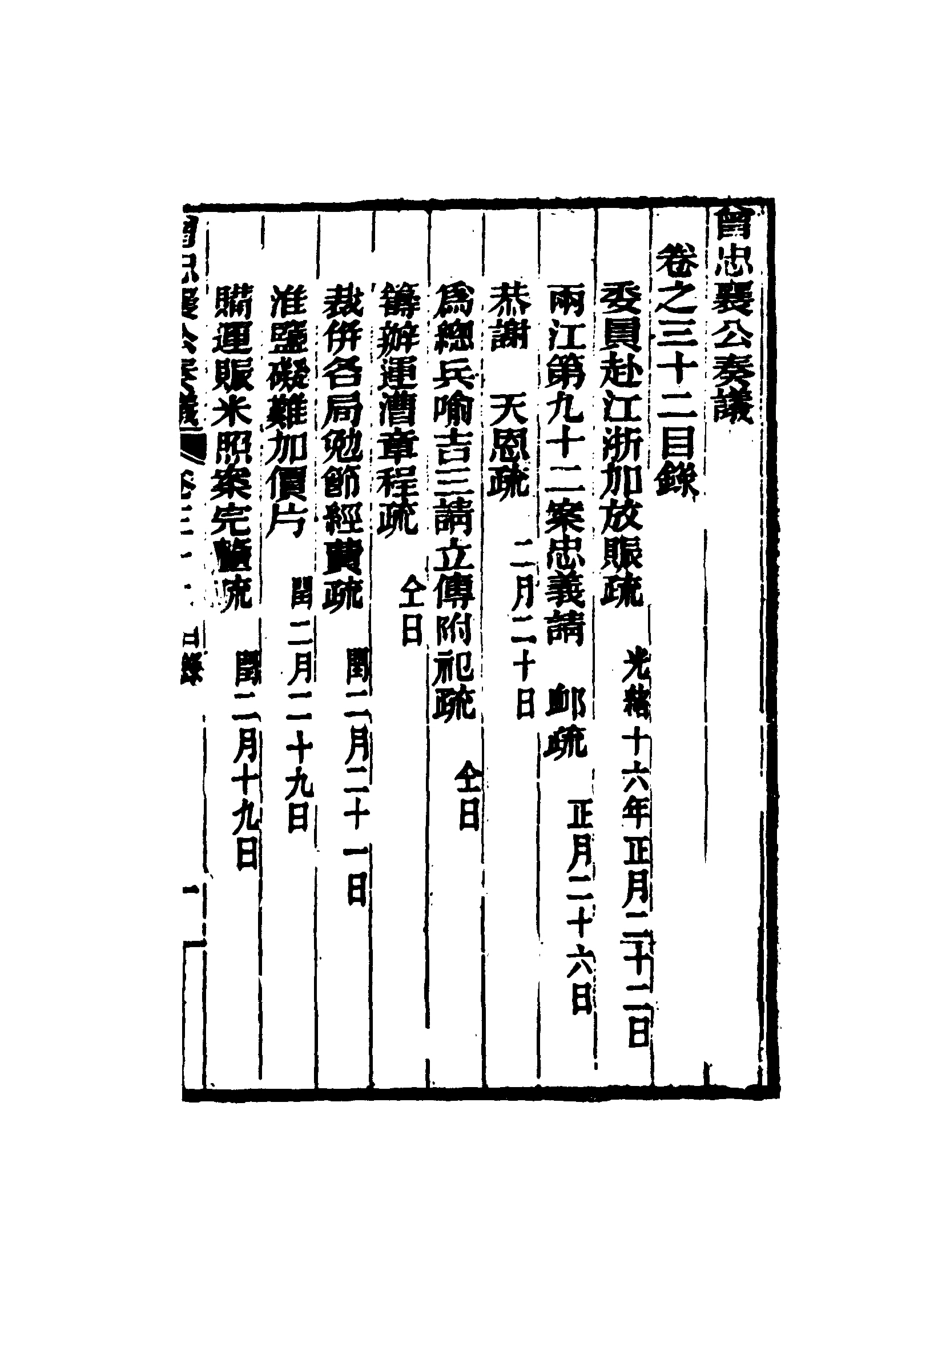 曾忠襄公奏議
卷之三十二目錄
委員赴江浙加放賑疏 光緒十六年正月二十二日
兩江第九十二案忠義請 卹疏 正月二十六日
恭謝 天恩疏 二月二十日
爲總兵喻吉三請立傳附祀疏 仝日
籌辦運漕章程疏 仝日
裁併各局勉節經費疏 閏二月二十一日
淮鹽礙難加價片 閏二月二十九日
購運賑米照案完釐疏 閏二月十九日
曾忠襄公奏議 卷三十二目錄 一